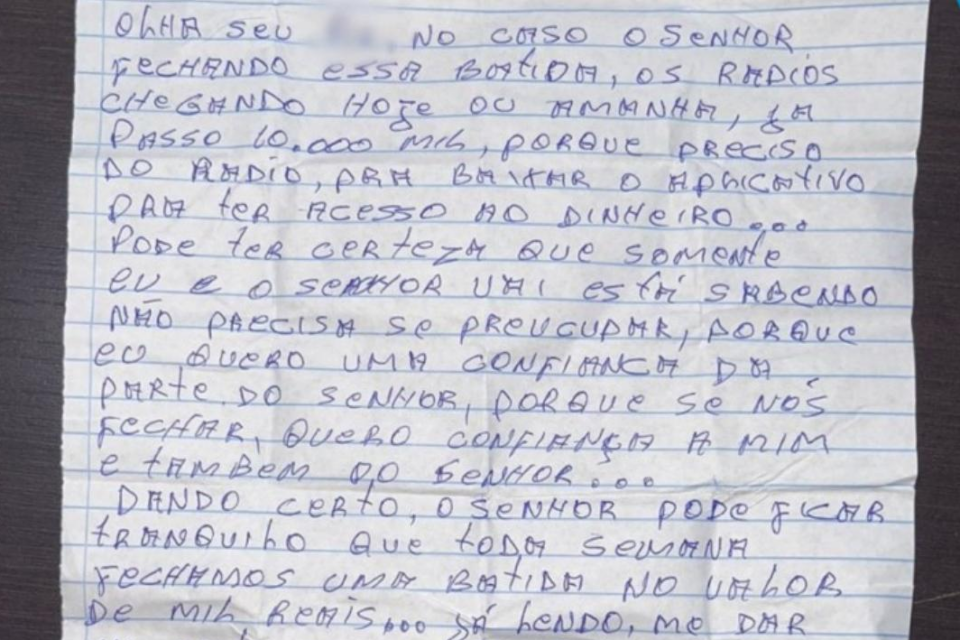 OLHA SEU , NO CASO O SENHOR
FECHANDO ESSA BATIDA, OS RADIOS
CHEGANDO HOJE OU AMANHA, JA
PASSO 10.000 MIL, PORQUE PRECISO
DO RADIO, PRA BAIXAR O APLICATIVO
PRA TER ACESSO AO DINHEIRO...
PODE TER CERTEZA QUE SOMENTE
EU E O SENHOR VAI ESTÁ SABENDO
NÃO PRECISA SE PREUCUPAR, PORQUE
EU QUERO UMA CONFIANCA DA
PARTE DO SENHOR, PORQUE SE NÓS
FECHAR, QUERO CONFIANÇA A MIM
E TAMBEM DO SENHOR...
DANDO CERTO, O SENHOR PODE FICAR
TRANQUILO QUE TODA SEMANA
FECHAMOS UMA BATIDA NO VALOR
DE MIL REAIS... SÁ LENDO, ME DAR